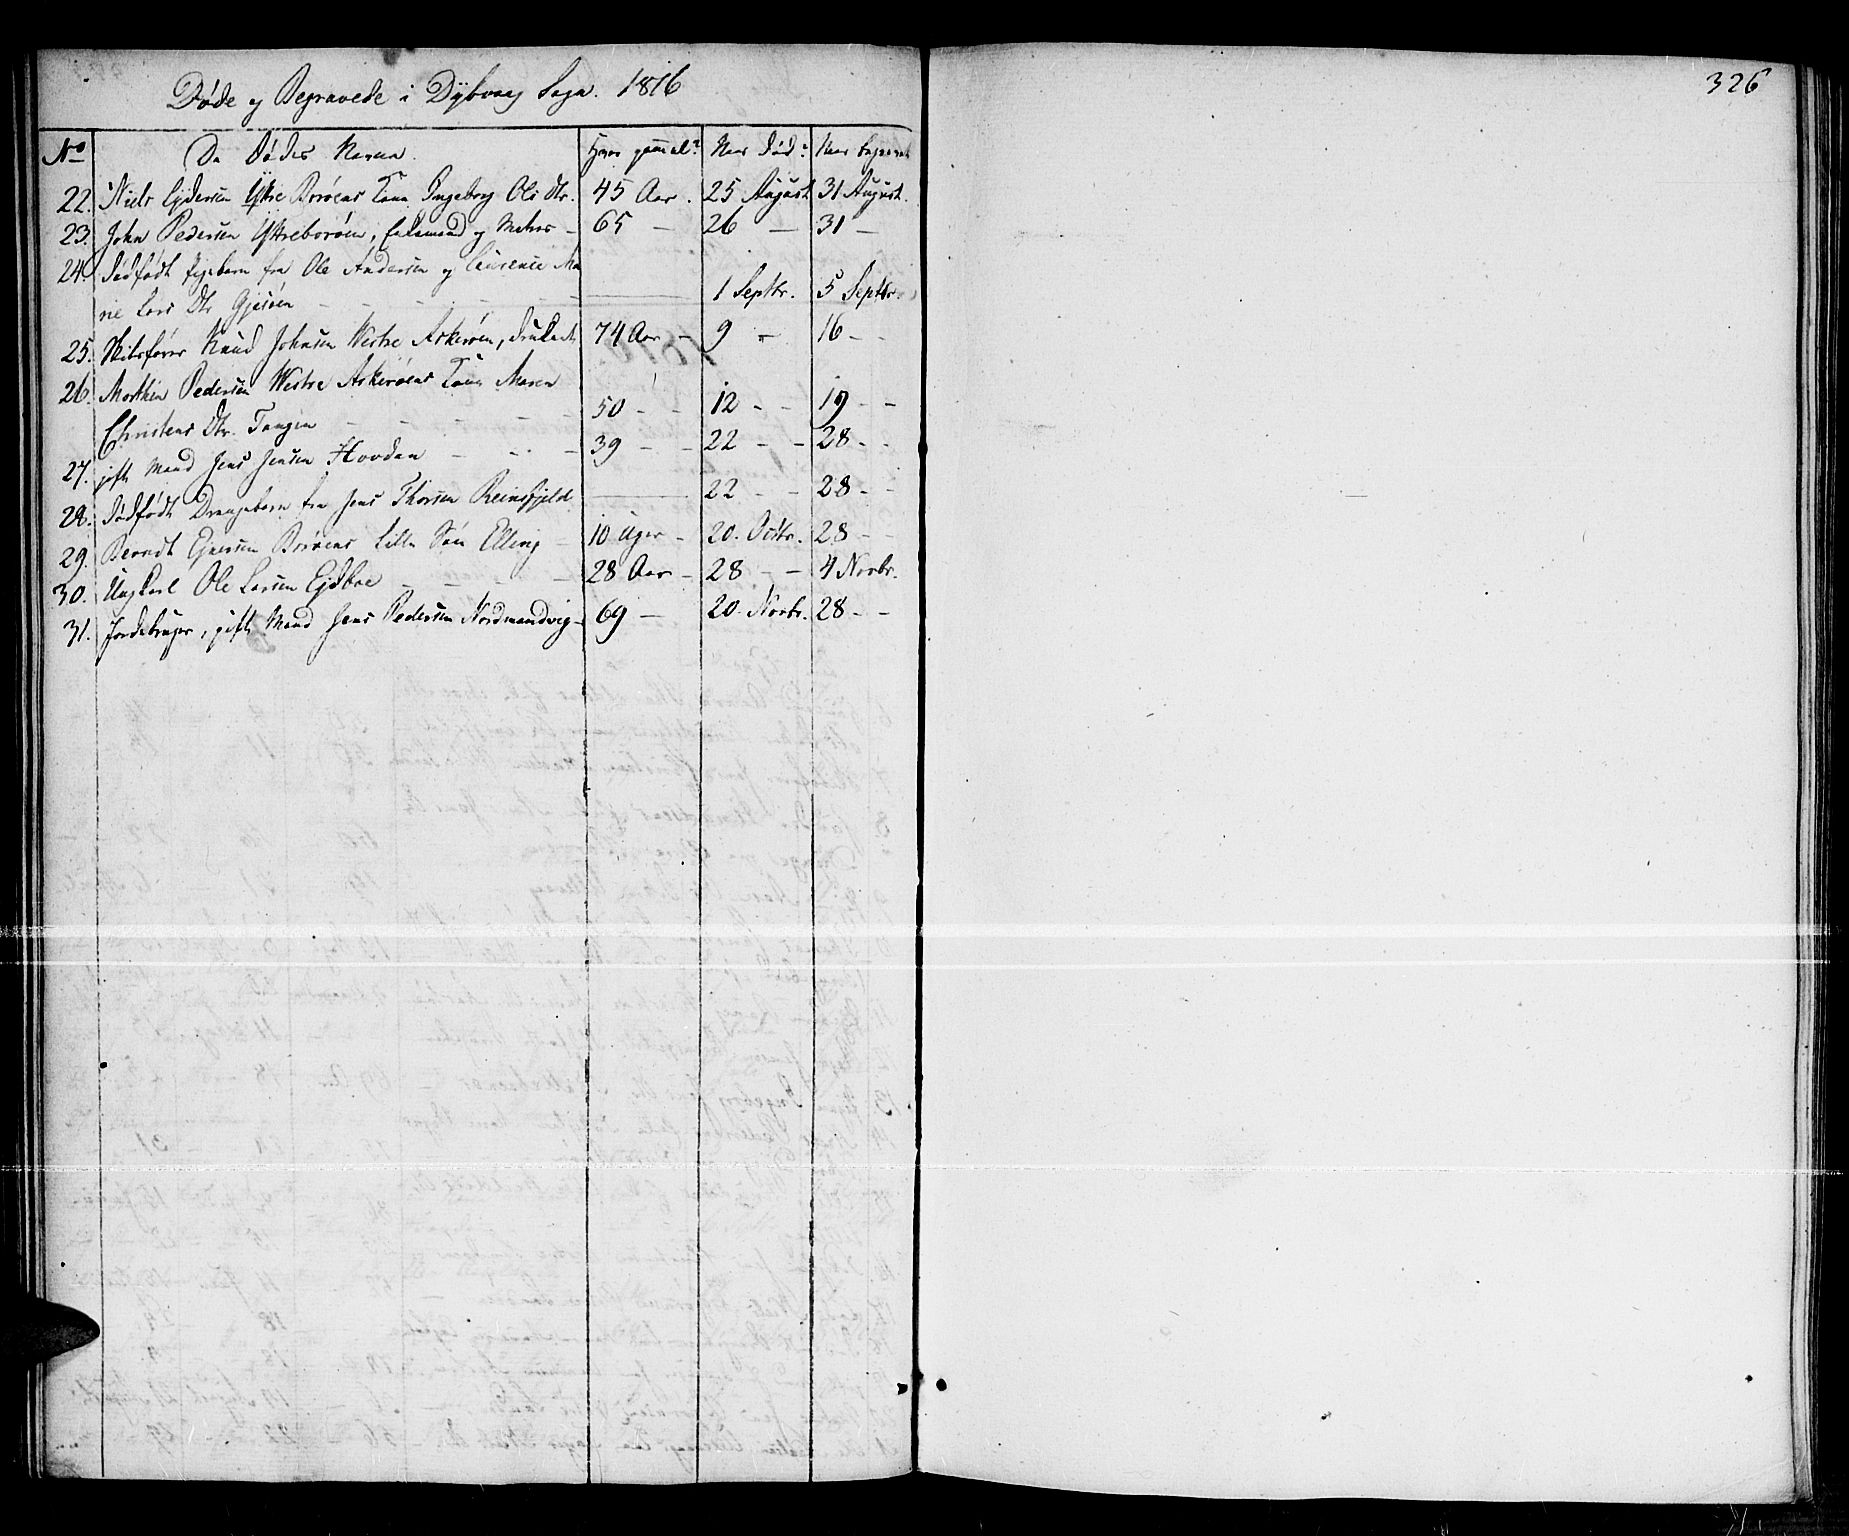 326
Døde og Begravede i Dybvaag Sogn. 1816
No De Dødes Navne. Hvor gammel? Naar død? Naar begravet
22. Niels Ejdersen Ystre Borøens Kone Ingeborg Ols Dtr. 45 Aar. 25 August 31 August.
23. John Pedersen Ystreborøen, Enkemand og Matros - 65 - 26 - 31 -
24. Dødfødt Pigebarn fra Ole Andersen og Laurense Ma
rie Lars Dtr Gjesøen - - - 1 Septbr. 5 Septbr.
25. Skibsfører Knud Johnsen Westre Askerøen, druknet 74 Aar - 9 - 16 - -
26. Morthen Pedersen Westre Askerøens Kone Maren
Christens Dtr. Tangen - - 50 - - 12 - - 19 - -
27. gift Mand Jens Jensen Hovdan - - - 39 - - 22 - - 28 - -
28. Dødfødt Drengebarn fra Jens Thorsen Reinsfjeld 22 - - 28 - -
29. Berndt Ejversen Borøens lille Søn Elling - 10 Uger - 20. Octbr. 28 - -
30. Ungkarl Ole Larsen Ejdboe - - - 28 Aar - 28 - - 4 Novbr.
31. Jordebruger, gift Mand Jens Pedersen Nordmandvig - 69 - 20. Novbr. 28 - -